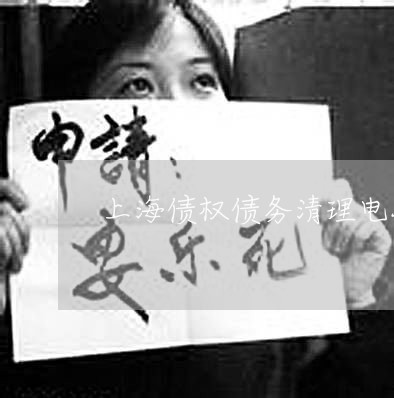 申請：
上海债权债务清理电..
安乐死